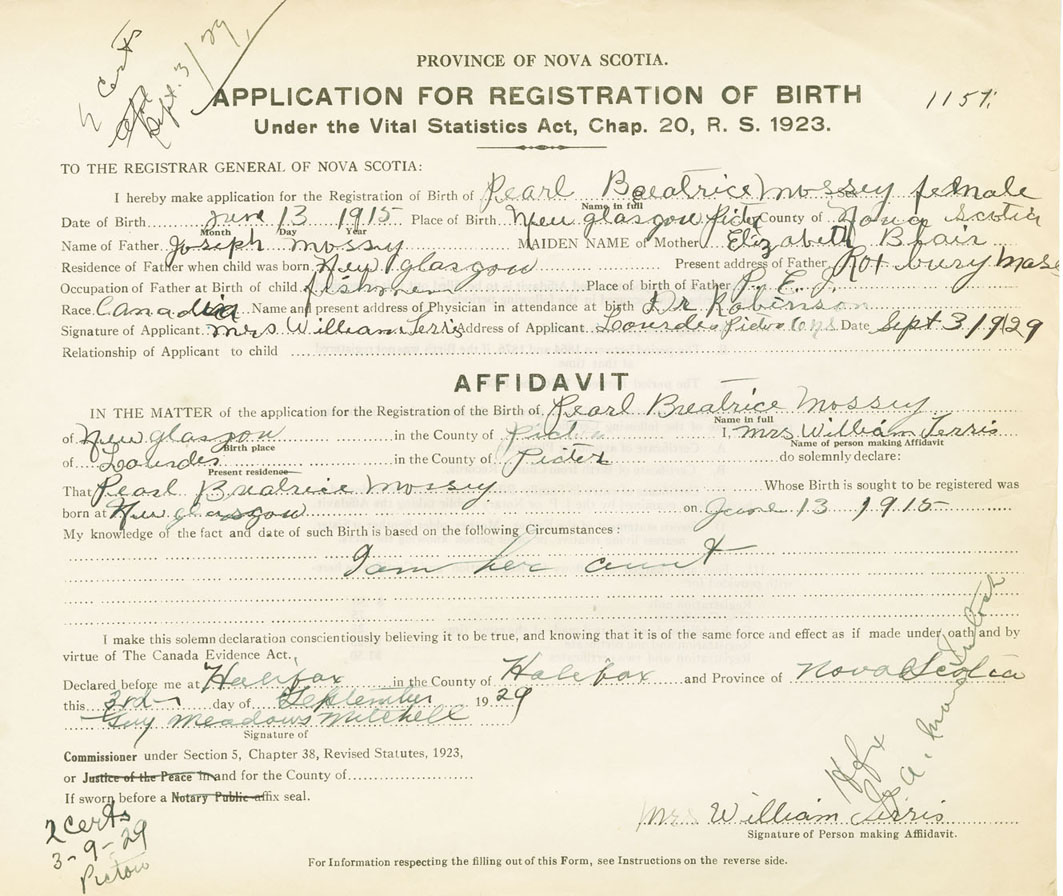 2 Certs
Sept. 3/29
PROVINCE OF NOVA SCOTIA.
APPLICATION FOR REGISTRATION OF BIRTH
1157.
Under the Vital Statistics Act, Chap. 20, R. S. 1923.
TO THE REGISTRAR GENERAL OF NOVA SCOTIA:
I hereby make application for the Registration of Birth of Pearl Breatrice Mossey female
Name in full
Date of Birth June 13 1915 Place of Birth New glasgow Picto County of Nova Scotia
Month Day Year
Name of Father Joseph Mossey MAIDEN NAME of Mother Elizabeth Blair
Residence of Father when child was born New glasgow Present address of Father Roxbury Mass
Occupation of Father at Birth of child fishmen Place of birth of Father P. E. I.
Race Canadian Name and present address of Physician in attendance at birth Dr Robinson
Signature of Applicant Mrs. William Ferris Address of Applicant Lourdes Pictou Co N.S. Date Sept. 3 1929
Relationship of Applicant to child
AFFIDAVIT
IN THE MATTER of the application for the Registration of the Birth of Pearl Breatrice Mossey
Name in full
of New glasgow in the County of Picto I, Mrs William Ferris
Birth place Name of person making Affidavit
of Lourdes in the County of Picter do solemnly declare:
Present residence
That Pearl Breatrice Mossey Whose Birth is sought to be registered was
born at New glasgow on June 13 1915
My knowledge of the fact and date of such Birth is based on the following Circumstances:
I am her aunt
I make this solemn declaration conscientiously believing it to be true, and knowing that it is of the same force and effect as if made under oath and by
virtue of The Canada Evidence Act.
Declared before me at Halifax in the County of Halifax and Province of Nova Scotia
this 3rd day of September 1929
Guy Meadows Mitchell
Signature of
Commissioner under Section 5, Chapter 38, Revised Statutes, 1923,
or Justice of the Peace in and for the County of
If sworn before a Notary Public affix seal.
2 certs
3-9-29
Pictou
Hfx
Mrs William Ferris
Signature of Person making Affidavit.
For Information respecting the filling out of this Form, see Instructions on the reverse side.